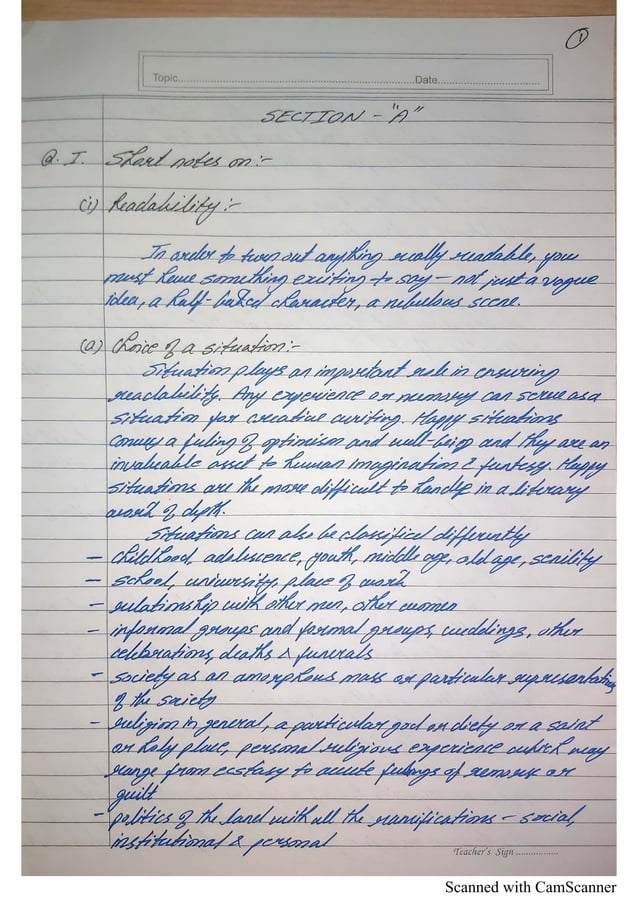 1
Topic.......................................................Date...............................
SECTION - "A"
Q. I. Short notes on:-
(i) Readability:-
In order to turn out anything really readable, you
must have something exciting to say - not just a vague
idea, a half-baked character, a nebulous scene.
(a) Choice of a situation:-
Situation plays an important role in ensuring
readability. Any experience or memory can serve as a
situation for creative writing. Happy situations
convey a feeling of optimism and well-being and they are an
invaluable asset to human imagination & fantasy. Happy
situations are the more difficult to handle in a literary
work of depth.
Situations can also be classified differently
- childhood, adolescence, youth, middle age, old age, senility
- school, university, place of work
- relationship with other men, other women
- informal groups and formal groups, weddings, other
celebrations, deaths & funerals
- society as an amorphous mass or particular representation
of the society
- religion in general, a particular god or diety or a saint
or holy place, personal religious experience which may
range from ecstasy to acute feelings of remorse or
guilt
- politics of the land with all the ramifications - social,
institutional & personal
Teacher's Sign .................
Scanned with CamScanner